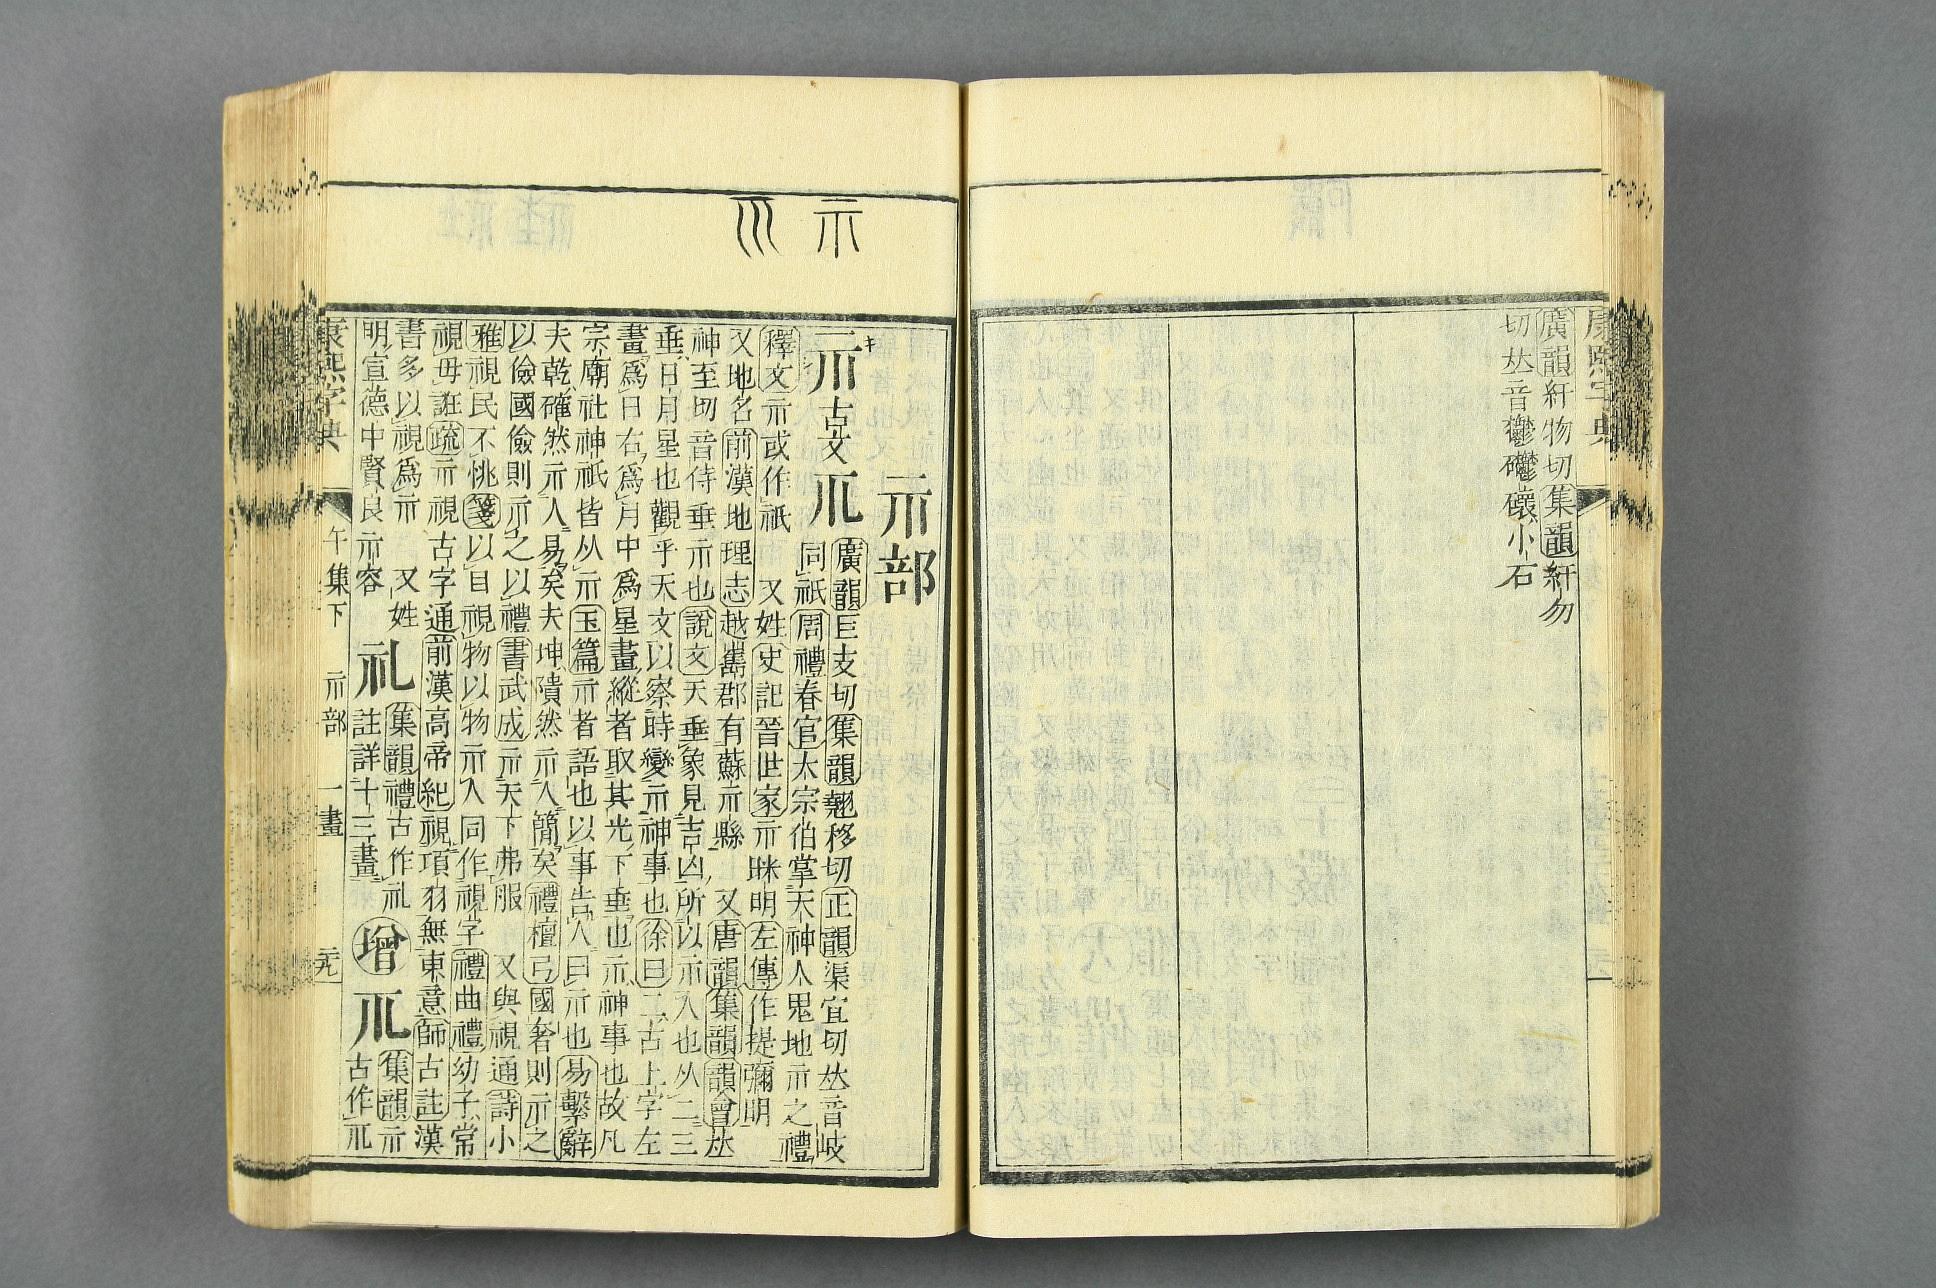 康熙字典
廣韻紆物切集韻紆勿
切𠀤音鬱小石
示
示部
示古文𥘅廣韻巨支切集韻翹移切正韻渠宜切𠀤音岐
同祇周禮春官大宗伯掌天神人鬼地示之禮
釋文示或作祇 又姓史記晉世家示眯明左傳作提彌明
又地名前漢地理志越巂郡有蘇示縣 又唐韻集韻韻會𠀤
神至切音侍垂示也說文天垂象見吉凶所以示人也从二三
垂日月星也觀乎天文以察時變示神事也徐曰二古上字左
畫爲日右爲月中爲星畫縱者取其光下垂也示神事也故凡
宗廟社神祇皆从示玉篇示者語也以事告人曰示也易繫辭
夫乾確然示人易矣夫坤隤然示人簡矣禮檀弓國奢則示之
以儉國儉則示之以禮書武成示天下弗服 又與視通詩小
雅視民不恌箋以目視物以物示人同作視字禮曲禮幼子常
視毋誑疏示視古字通前漢高帝紀視項羽無東意師古註漢
書多以視爲示 又姓
明宣德中賢良示容
礼集韻禮古作礼
註詳十三畫
增𥘅集韻示
古作𥘅
康熙字典 午集下 示部 一畫